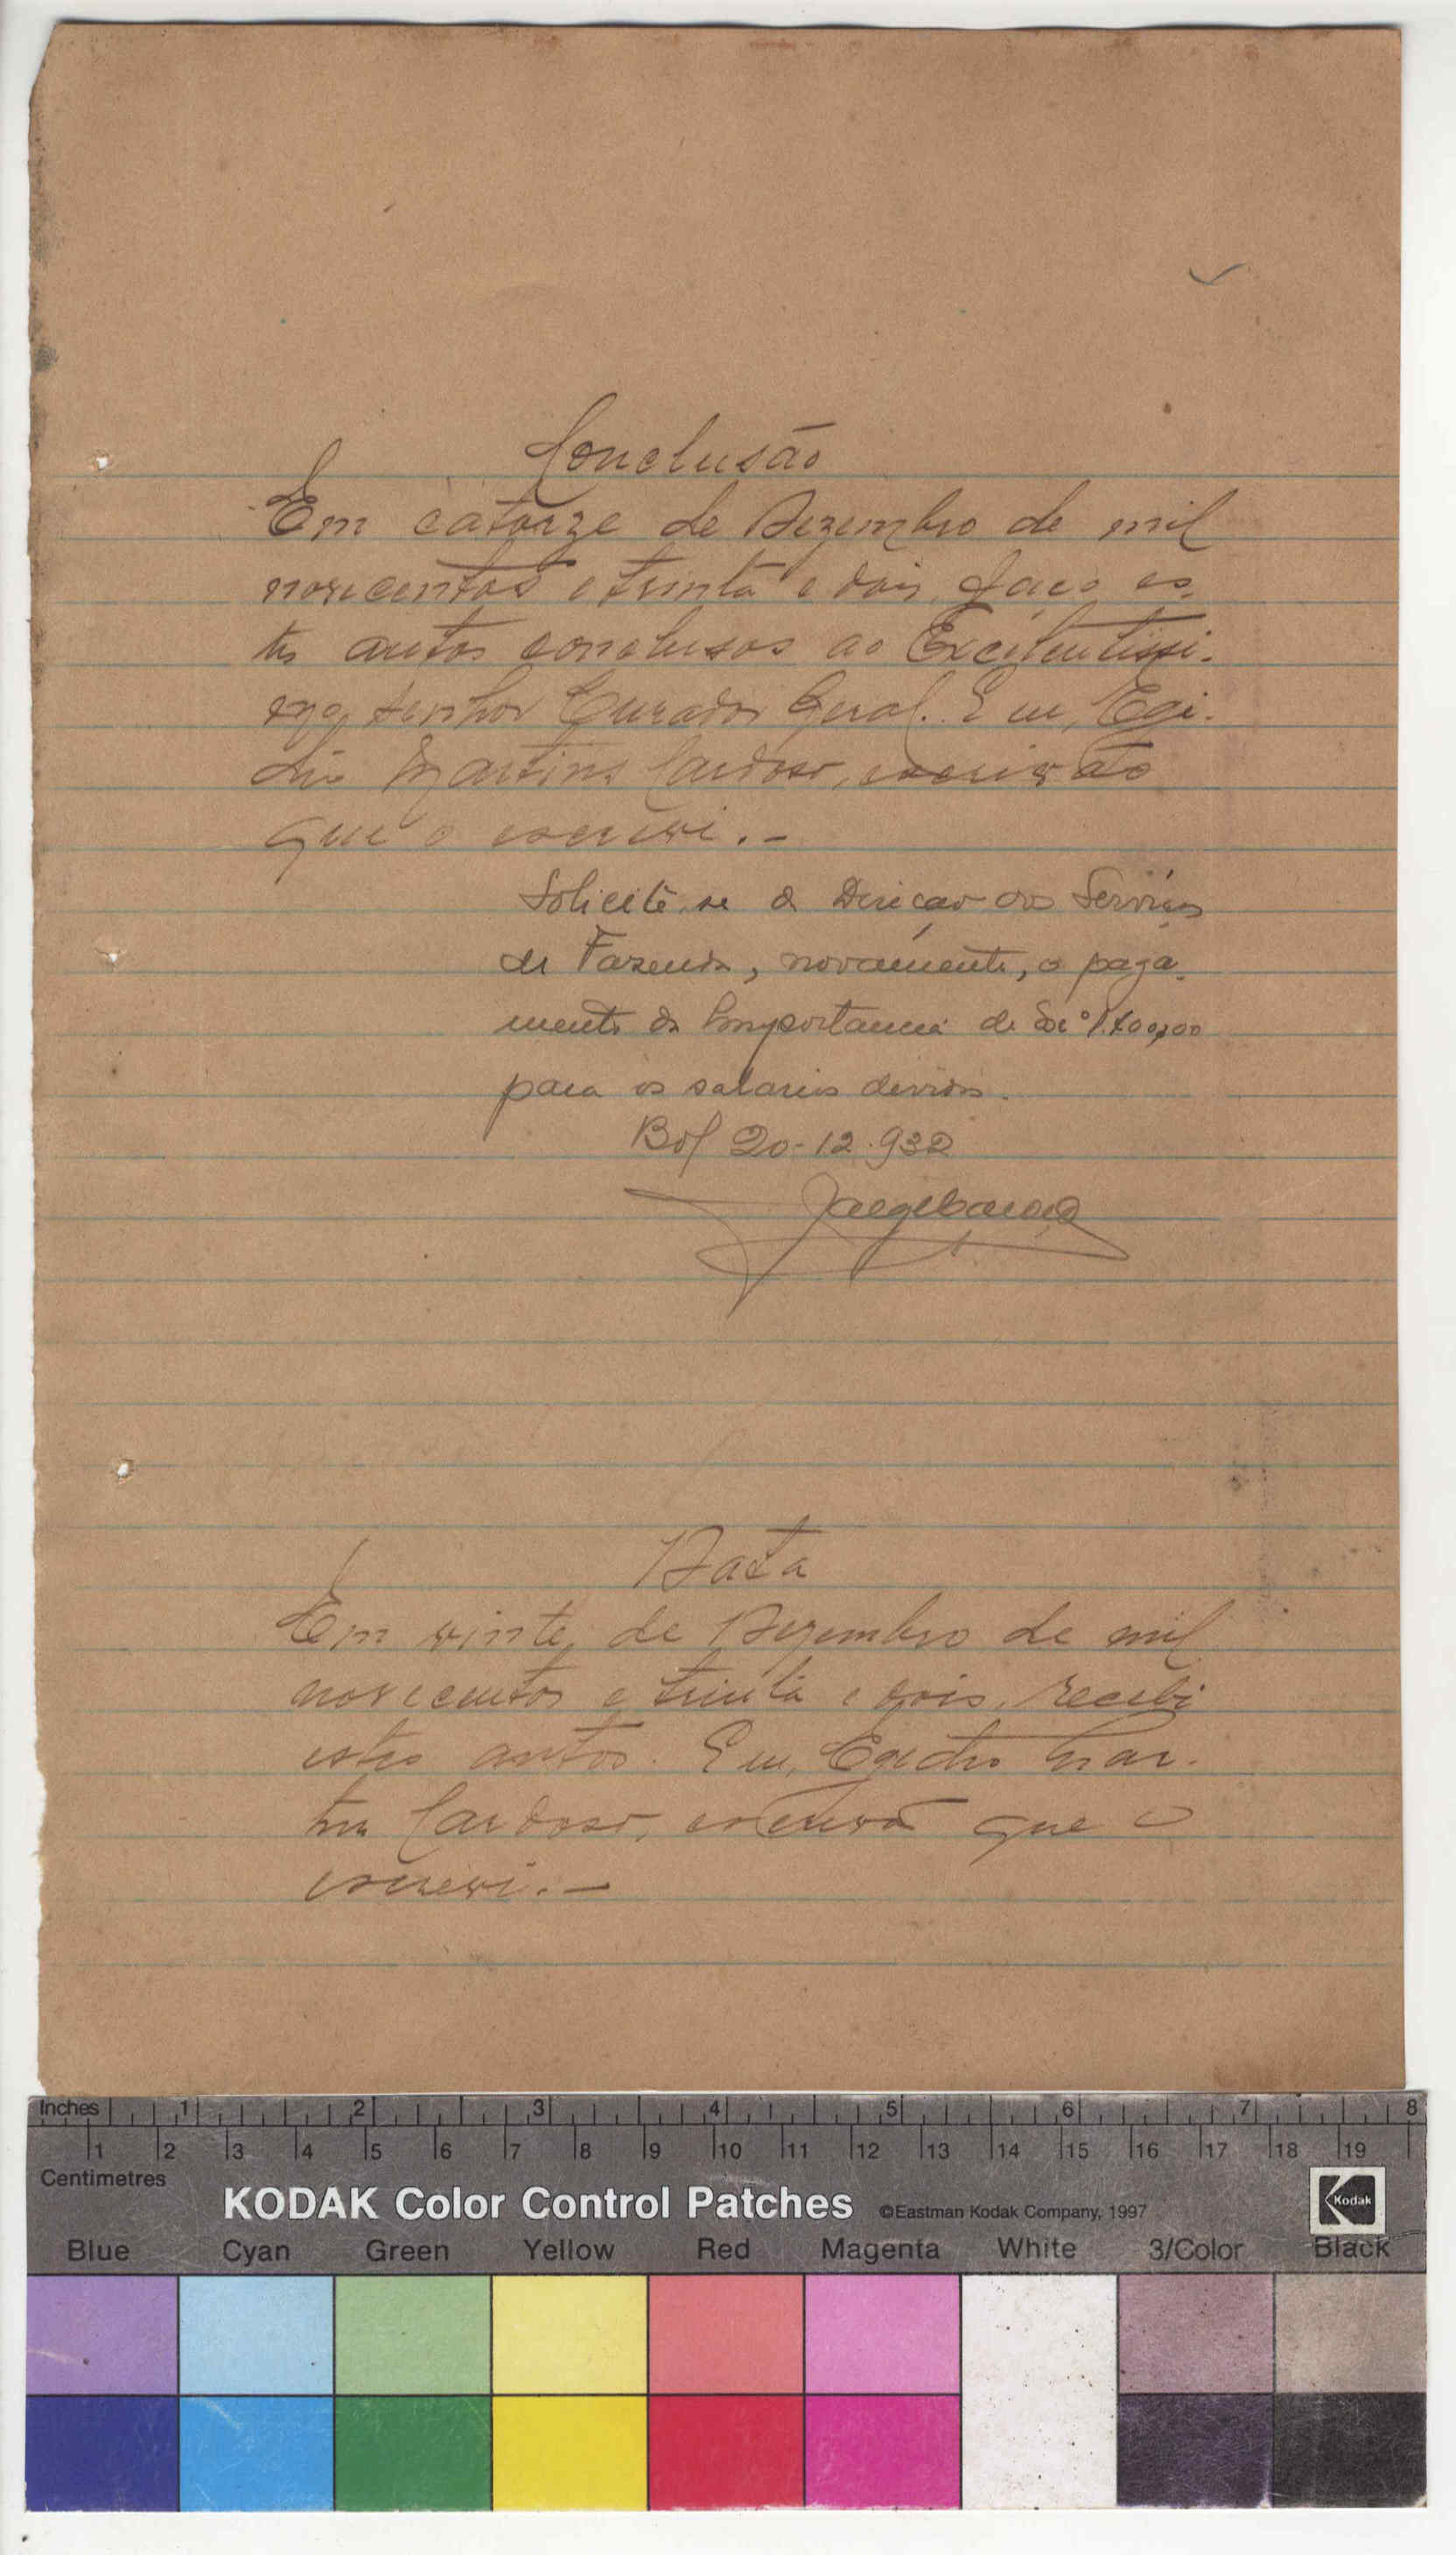 Conclusão
Em catorze de Dezembro de mil
novecentos e trinta e dois, faço es-
tes autos conclusos ao Excelentissi-
mo senhor Curador Geral. E eu, Egi-
dio Martins Cardoso, escrivão
que o escrevi.-
Solicite-se á Direcção dos Serviços
de Fazenda, novamente, o paga-
mento da importancia de
para os salarios devidos.
Bol 20-12-932
Data
Em vinte de Dezembro de mil
novecentos e trinta e dois, recebi
estes autos. E eu, Egidio Mar-
tins Cardoso, escrivão que o
escrevi.-
Inches 1 2 3 4 5 6 7 8
1 2 3 4 5 6 7 8 9 10 11 12 13 14 15 16 17 18 19
Centimetres
KODAK Color Control Patches ©Eastman Kodak Company, 1997 Kodak
Blue Cyan Green Yellow Red Magenta White 3/Color Black